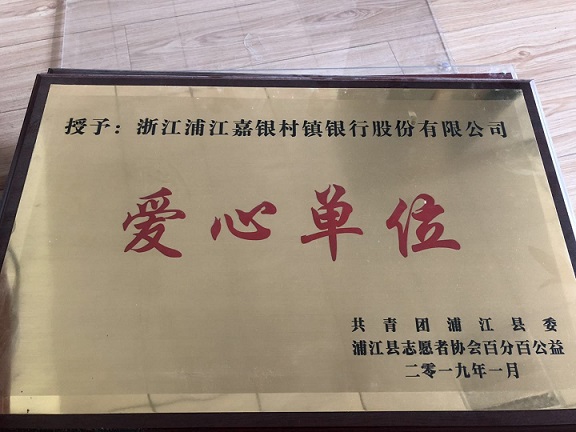 授予：浙江浦江嘉银村镇银行股份有限公司
爱心单位
共青团浦江县委
浦江县志愿者协会百分百公益
二零一九年一月